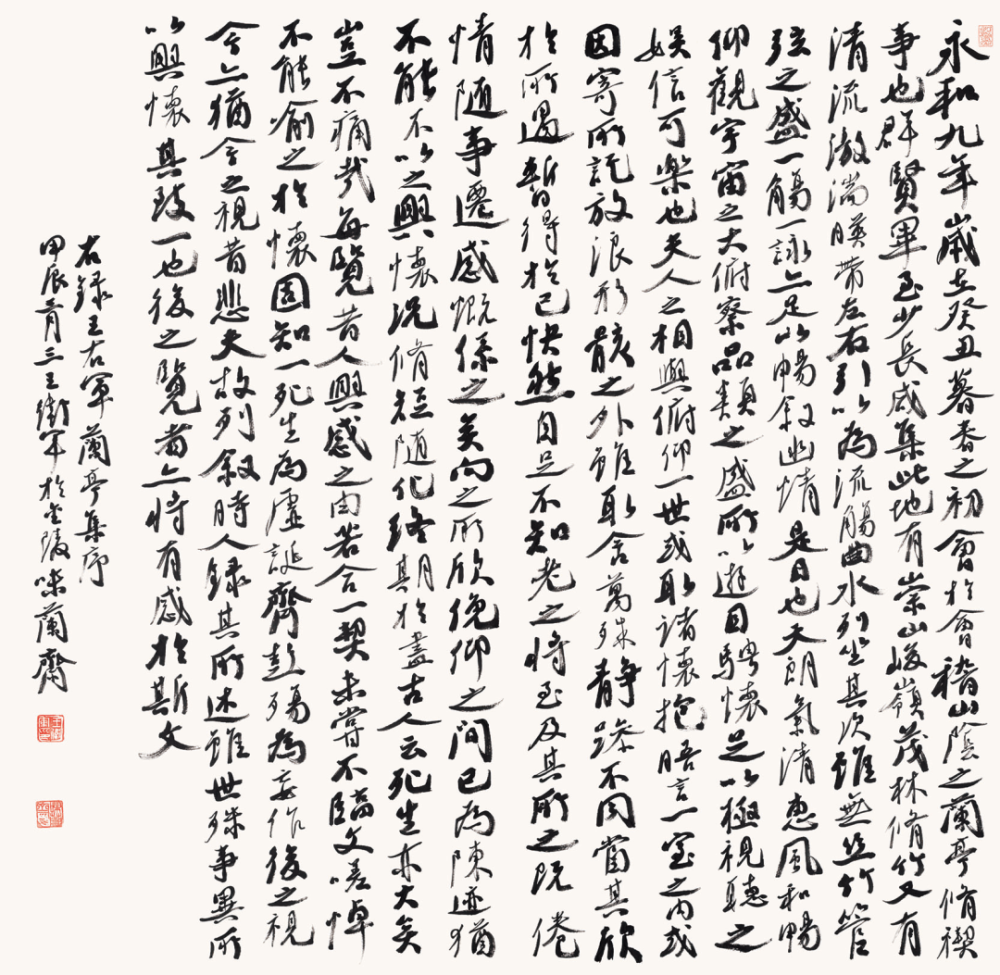 永和九年歲在癸丑暮春之初會於會稽山陰之蘭亭脩禊
事也群賢畢至少長咸集此地有崇山峻嶺茂林脩竹又有
清流激湍暎帶左右引以為流觴曲水列坐其次雖無絲竹管
弦之盛一觴一詠亦足以暢叙幽情是日也天朗氣清惠風和暢
仰觀宇宙之大俯察品類之盛所以遊目騁懷足以極視聽之
娛信可樂也夫人之相與俯仰一世或取諸懷抱晤言一室之內或
因寄所託放浪形骸之外雖取舍萬殊静躁不同當其欣
於所遇暫得於己快然自足不知老之將至及其所之既倦
情隨事遷感慨係之矣向之所欣俛仰之間已為陳迹猶
不能不以之興懷況脩短隨化終期於盡古人云死生亦大矣
豈不痛哉每覽昔人興感之由若合一契未嘗不臨文嗟悼
不能喻之於懷固知一死生為虛誕齊彭殤為妄作後之視
今亦猶今之視昔悲夫故列叙時人録其所述雖世殊事異所
以興懷其致一也後之覽者亦將有感於斯文
右録王右軍蘭亭集序
甲辰月三王衛军於金陵味蘭齋